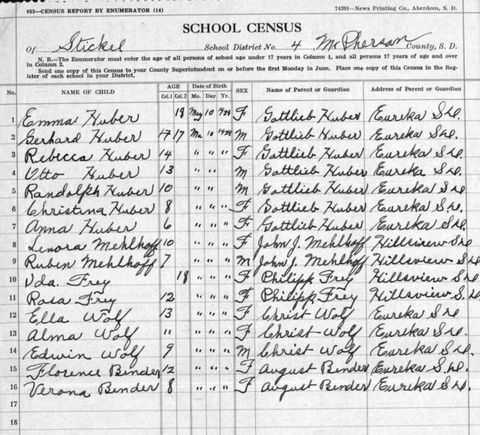 933—CENSUS REPORT BY ENUMERATOR (14) 74391—News Printing Co., Aberdeen, S. D.
SCHOOL CENSUS
Of Stickel School District No. 4 McPherson County, S. D.
N. B.—The Enumerator must enter the age of all persons of school age under 17 years in Column 1, and all persons 17 years of age and over in Column 2.
Send one copy of this Census to your County Superintendent on or before the first Monday in June. Place one copy of this Census in the Register of each school in your District.
No. NAME OF CHILD AGE Col. 1 Col. 2 Date of Birth Mo. Day Yr. SEX Name of Parent or Guardian Address of Parent or Guardian
1 Emma Huber 18 May 10 F Gottlieb Huber Eureka S.D.
2 Gerhard Huber 17 17 10 M Gottlieb Huber Eureka S.D.
3 Rebecca Huber 14 " " " F Gottlieb Huber Eureka S.D.
4 Otto Huber 13 " " M Gottlieb Huber Eureka S.D.
5 Randolph Huber 10 " " M Gottlieb Huber Eureka S.D.
6 Christina Huber 8 " " " F Gottlieb Huber Eureka S.D.
7 Anna Huber 6 " " " F Gottlieb Huber Eureka S.D.
8 Linora Mehlhoff 10 " " " F John J. Mehlhoff Hillsview S.D.
9 Ruben Mehlhoff 7 " " " M John J. Mehlhoff Hillsview S.D.
10 Ida Frey 18 " " " F Philipp Frey Hillsview S.D.
11 Rosa Frey 12 " " " F Philipp Frey Hillsview S.D.
12 Ella Wolf 13 " " " F Christ Wolf Eureka S.D.
13 Alma Wolf 11 " " " F Christ Wolf Eureka S.D.
14 Edwin Wolf 9 " " " M Christ Wolf Eureka S.D.
15 Florence Binder 12 " " " F August Binder Eureka S.D.
16 Verona Binder 8 " " " F August Binder Eureka S.D.
17
18